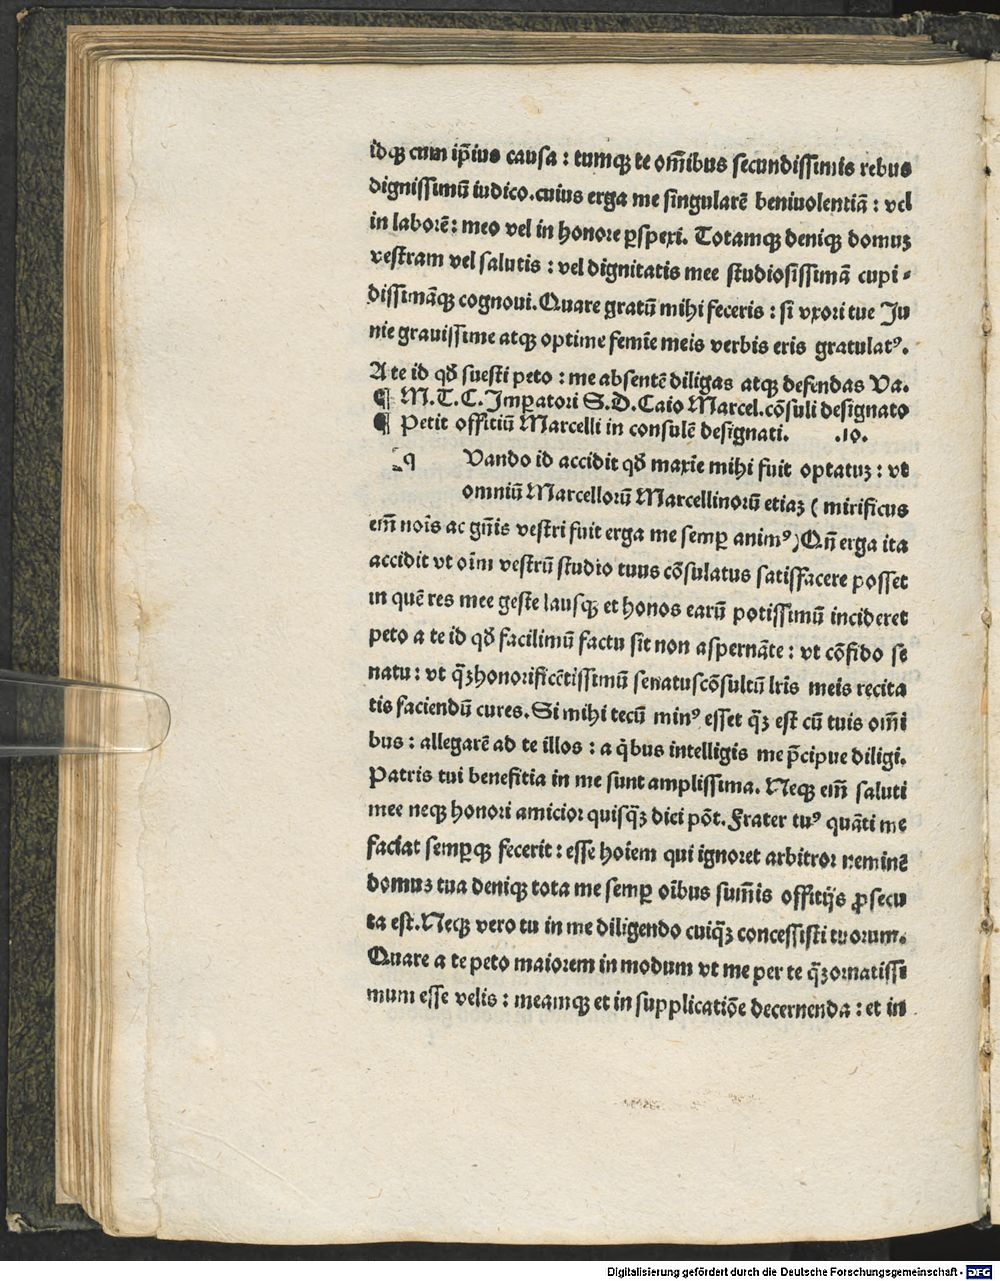 idqȝ cum ip̄ius causa : tumqȝ te om̄ibus secundissimis rebus
dignissimū iudico.cuius erga me singularē beniuolentiā : vel
in laborē : meo vel in honore ꝑspexi. Totamqȝ deniqȝ domuȝ
vestram vel salutis : vel dignitatis mee studiosissimā cupi-
dissimāqȝ cognoui.Quare gratū mihi feceris : si vxori tue Ju
nie grauissime atqȝ optime femīe meis verbis eris gratulatꝰ.
A te id qd̄ suesti peto : me absentē diligas atqȝ defendas Va.
¶ M.T.C.Imꝑatori S.D.Caio Marcel.cōsuli designato
¶ Petit offitiū Marcelli in consulē designati. .10.
q Vando id accidit qd̄ maxīe mihi fuit optatuȝ : vt
omniū Marcellorū Marcellinorū etiaȝ ( mirificus
em̄ noīs ac gn̄is vestri fuit erga me semꝑ animꝰ)Qn̄ erga ita
accidit vt oīm vestrū studio tuus cōsulatus satisfacere posset
in quē res mee geste lausqȝ et honos earū potissimū incideret
peto a te id qd̄ facilimū factu sit non aspernāte : vt cōfido se
natu : vt q̄ȝhonorificētissimū senatuscōsultū lr̄is meis recita
tis faciendū cures.Si mihi tecū minꝰ esset q̄ȝ est cū tuis om̄i
bus : allegarē ad te illos : a q̇bus intelligis me p̄cipue diligi.
Patris tui benefitia in me sunt amplissima. Neqȝ em̄ saluti
mee neqȝ honori amicior quisq̄ȝ dici pōt. Frater tuꝰ quāti me
faciat semꝑqȝ fecerit : esse hoiem qui ignoret arbitror neminē
domuȝ tua deniqȝ tota me semꝑ oībus sum̄is offitijs ꝓsecu
ta est.Neqȝ vero tu in me diligendo cuiq̄ȝ concessisti tuorum.
Quare a te peto maiorem in modum vt me per te q̄ȝornatissi
mum esse velis : meamqȝ et in supplicatiōe decernenda : et in
Digitalisierung gefördert durch die Deutsche Forschungsgemeinschaft - DFG